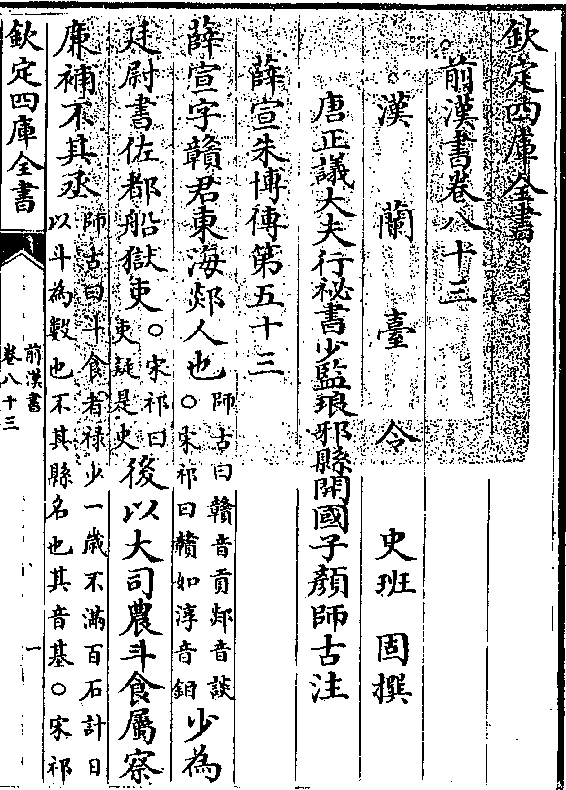 欽定四庫全書
前漢書卷八十三
漢蘭臺令史班固撰
唐正議大夫行祕書少監琅邪縣開國子顏師古注
薛宣朱博傳第五十三
薛宣字贛君東海郯人也師古曰贛音貢郯音談○宋祁曰贛如淳音鈤少為
廷尉書佐都船獄吏○宋祁曰吏疑是史後以大司農斗食屬察
廉補不其丞師古曰斗食者禄少一歳不滿百石計日以斗為數也不其縣名也其音基○宋祁
欽定四庫全書
前漢書
卷八十三
一